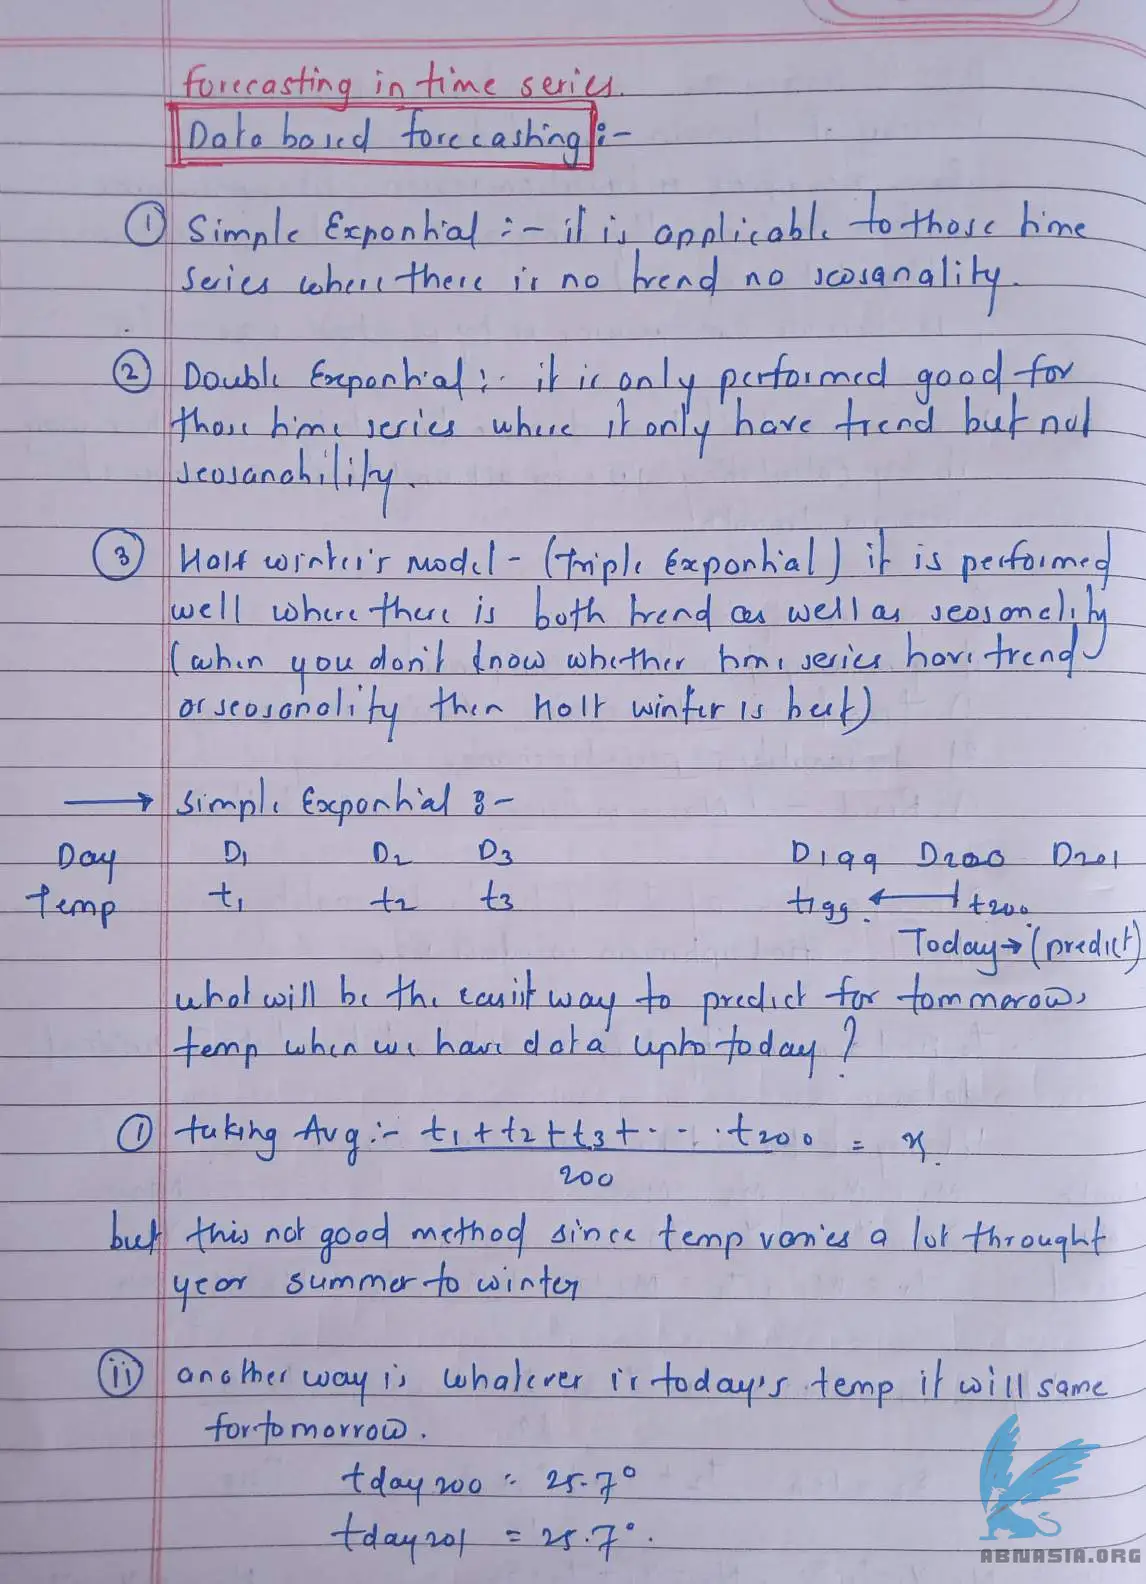 forecasting in time series.
Data based forecasting :-
① Simple Exponhial :- it is applicable to those time
series where there is no trend no seosanality.
② Double Exponhial :- it is only performed good for
those time series where it only have trend but not
seosanability.
③ Holt winter's model - (triple Exponhial) it is performed
well where there is both trend as well as seosonality
(when you don't know whether time series have trend
or seosonality then holt winter is best)
→ Simple Exponhial :-
Day D1 D2 D3 D199 D200 D201
Temp t1 t2 t3 t199 ← t200
Today → (predict)
what will be the easiit way to predict for tommorow,
temp when we have data upto today ?
① taking Avg :- t1 + t2 + t3 + . . . . t200 = x.
200
but this not good method since temp varies a lot throught
year summer to winter
ii another way is whatever is today's temp it will same
for tomorrow.
tday 200 = 25.7°
tday 201 = 25.7°.
ABNASIA.ORG